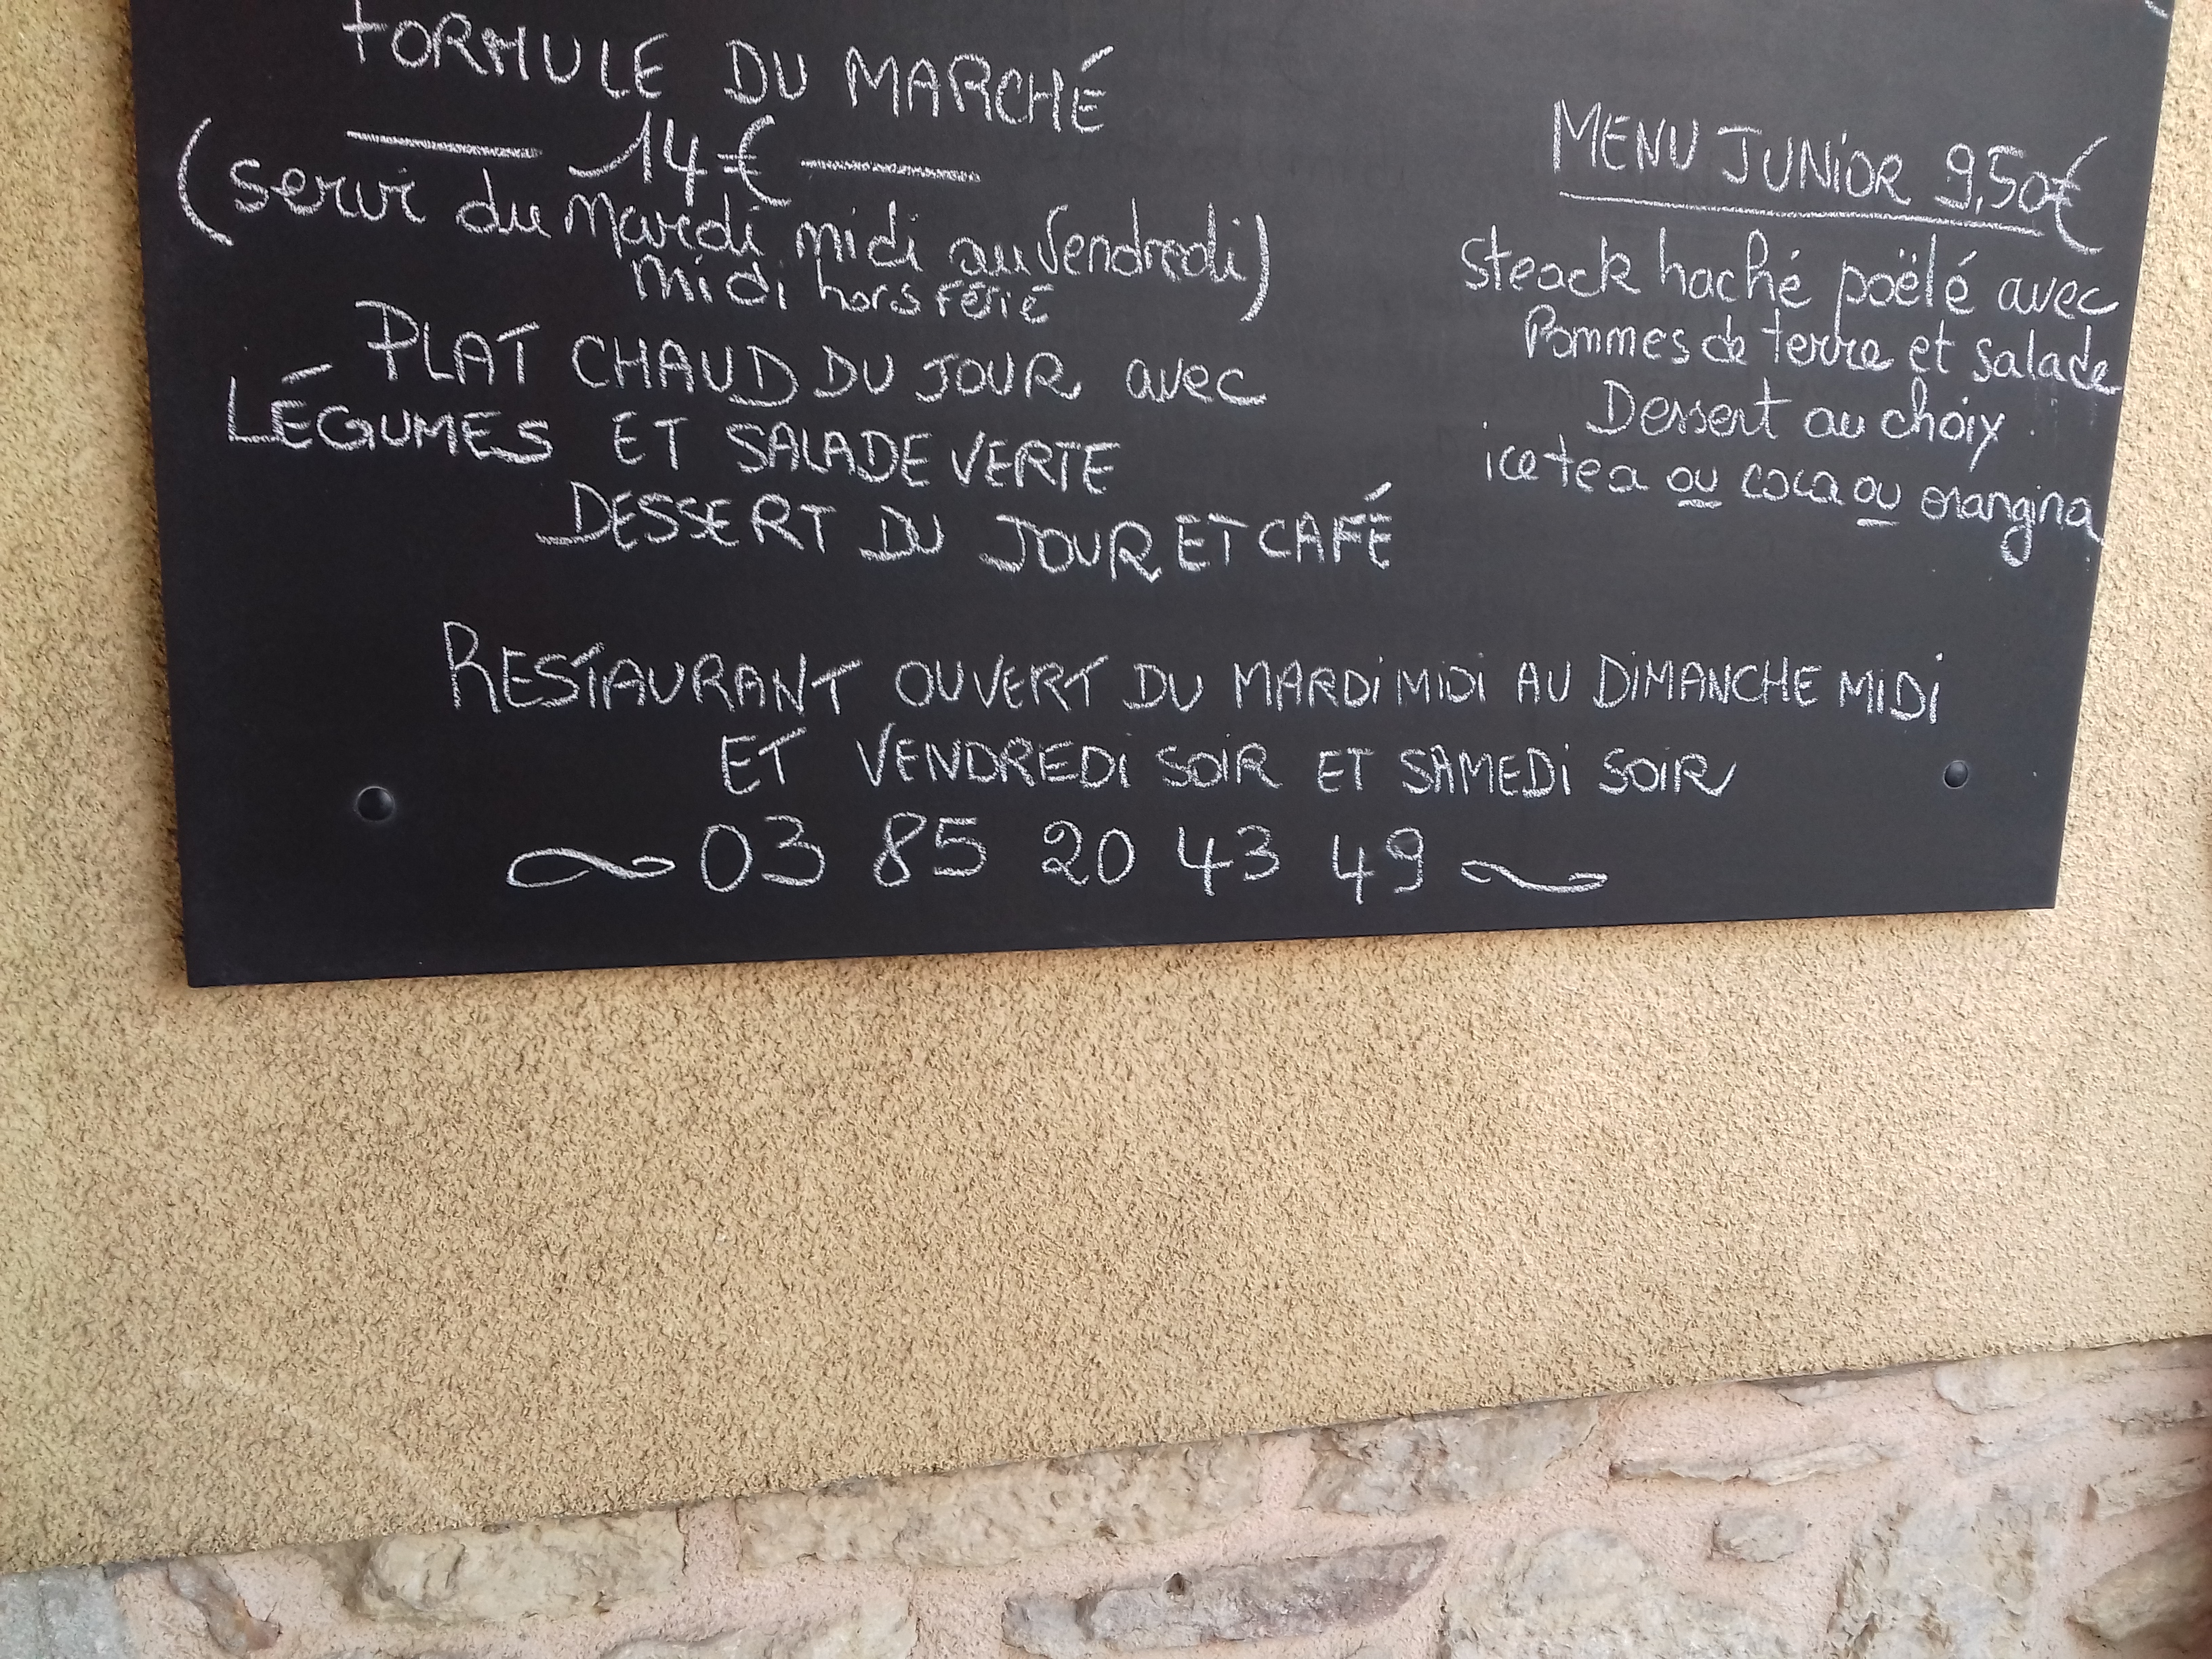 FORMULE DU MARCHÉ
14€
(servi du Mardi midi au Vendredi)
midi hors férié
PLAT CHAUD DU JOUR avec
LÉGUMES ET SALADE VERTE
DESSERT DU JOUR ET CAFÉ
MENU JUNIOR 9,50€
Steack haché poëlé avec
Pommes de terre et salade
Dessert au choix
ice tea ou coca ou orangina
RESTAURANT OUVERT DU MARDI MIDI AU DIMANCHE MIDI
ET VENDREDI SOIR ET SAMEDI SOIR
03 85 20 43 49